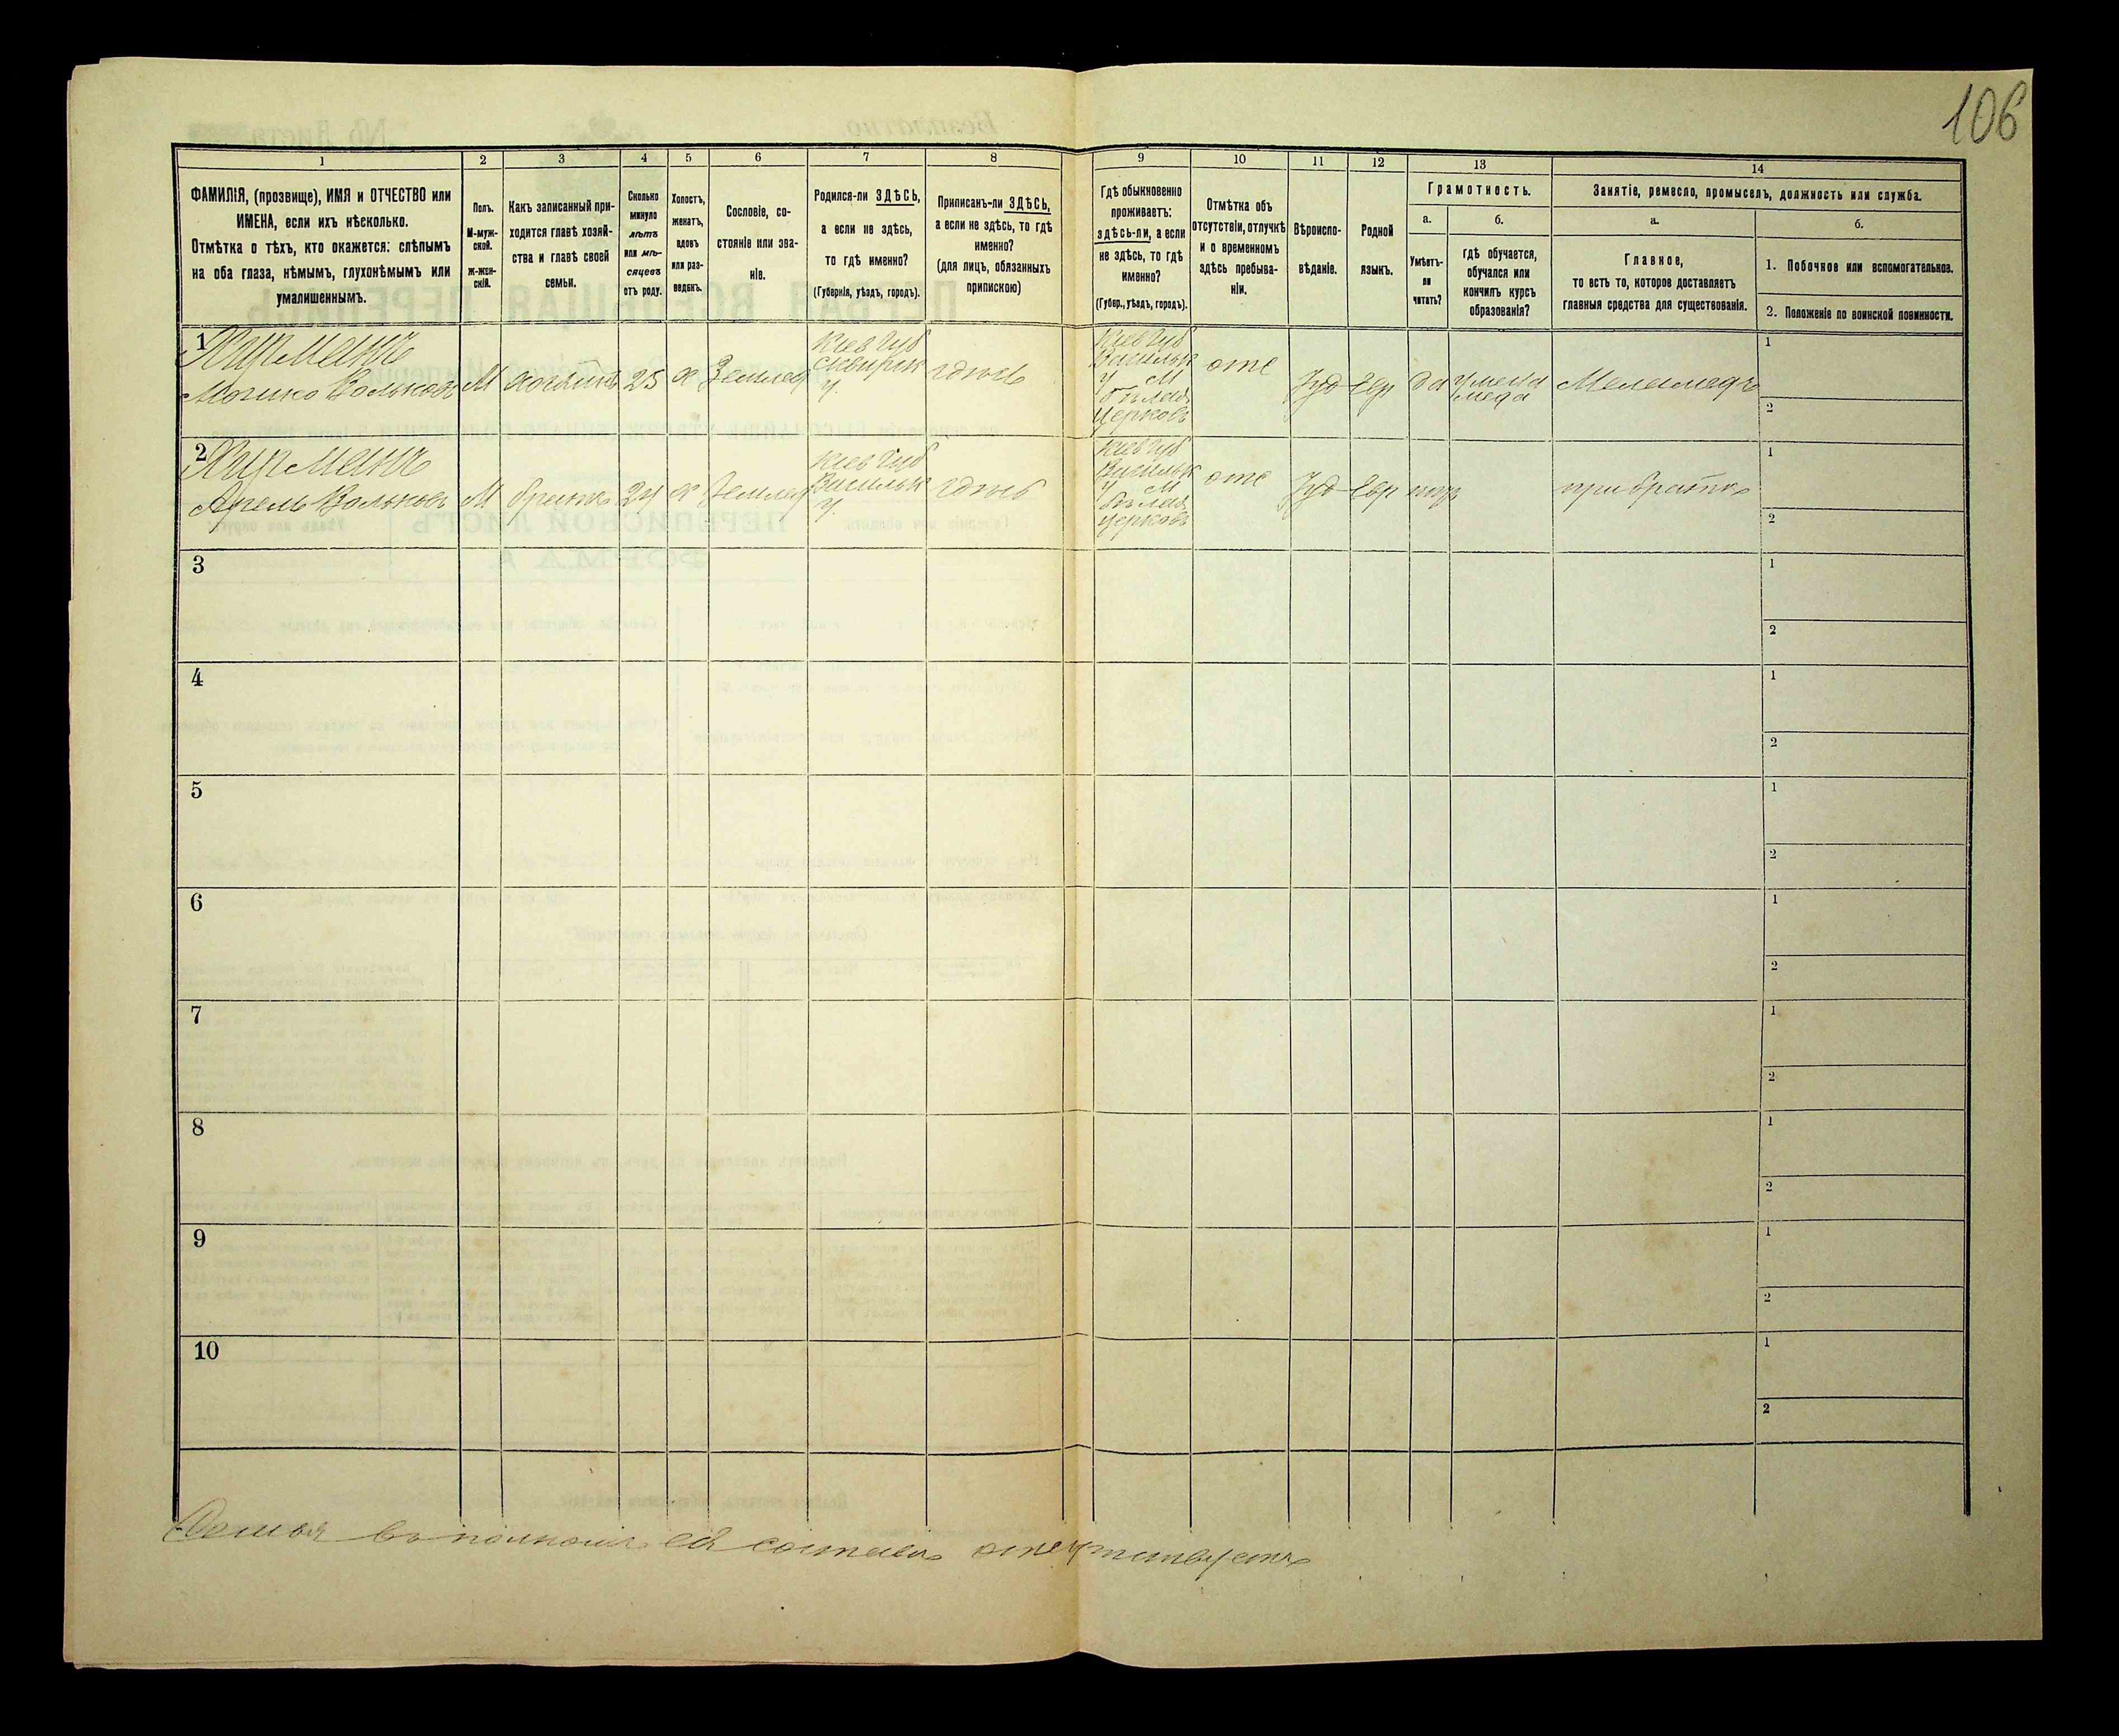 106
1
2
3
4
5
6
7
8
9
10
11
12
13
14
ФАМИЛІЯ, (прозвище), ИМЯ и ОТЧЕСТВО или
ИМЕНА, если ихъ нѣсколько.
Отмѣтка о тѣхъ, кто окажется: слѣпымъ
на оба глаза, нѣмымъ, глухонѣмымъ или
умалишеннымъ.
Полъ.
М-муж-
ской.
Ж-жен-
скій.
Какъ записанный при-
ходится главѣ хозяй-
ства и главѣ своей
семьи.
Сколько
минуло
лѣтъ
или мѣ-
сяцевъ
отъ роду.
Холостъ,
женатъ,
вдовъ
или раз-
веденъ.
Сословіе, со-
стояніе или зва-
ніе.
Родился-ли ЗДѢСЬ,
а если не здѣсь,
то гдѣ именно?
(Губернія, уѣздъ, городъ).
Приписанъ-ли ЗДѢСЬ,
а если не здѣсь, то гдѣ
именно?
(для лицъ, обязанныхъ
припискою)
Гдѣ обыкновенно
проживаетъ:
здѣсь-ли, а если
не здѣсь, то гдѣ
именно?
(Губер., уѣздъ, городъ).
Отмѣтка объ
отсутствіи, отлучкѣ
и о временномъ
здѣсь пребыва-
ніи.
Вѣроиспо-
вѣданіе.
Родной
языкъ.
Грамотность.
а.
б.
Умѣетъ-
ли
читать?
Гдѣ обучается,
обучался или
кончилъ курсъ
образованія?
Занятіе, ремесло, промыселъ, должность или служба.
а.
б.
Главное,
то есть то, которое доставляетъ
главныя средства для существованія.
1. Побочное или вспомогательное.
2. Положеніе по воинской повинности.
1
Мошко Вольковъ
М
хозяинъ
25
х
Землед
Кіев Губ
Сквирск
у.
здѣсь
Кіев Губ
Васильк
у М
Бѣлая
Церковь
отс
Іуд
Евр
да
у мела
меда
Меламедъ
1
2
2
Вольковъ
М
братъ
24
х
Землед
Кіев Губ
Васильк
у.
здѣсь
Кіев Губ
Васильк
у М
Бѣлая
Церковь
отс
Іуд
Евр
при братѣ
1
2
3
1
2
4
1
2
5
1
2
6
1
2
7
1
2
8
1
2
9
1
2
10
1
2
Семья въ полномъ ея составѣ отсутствуетъ